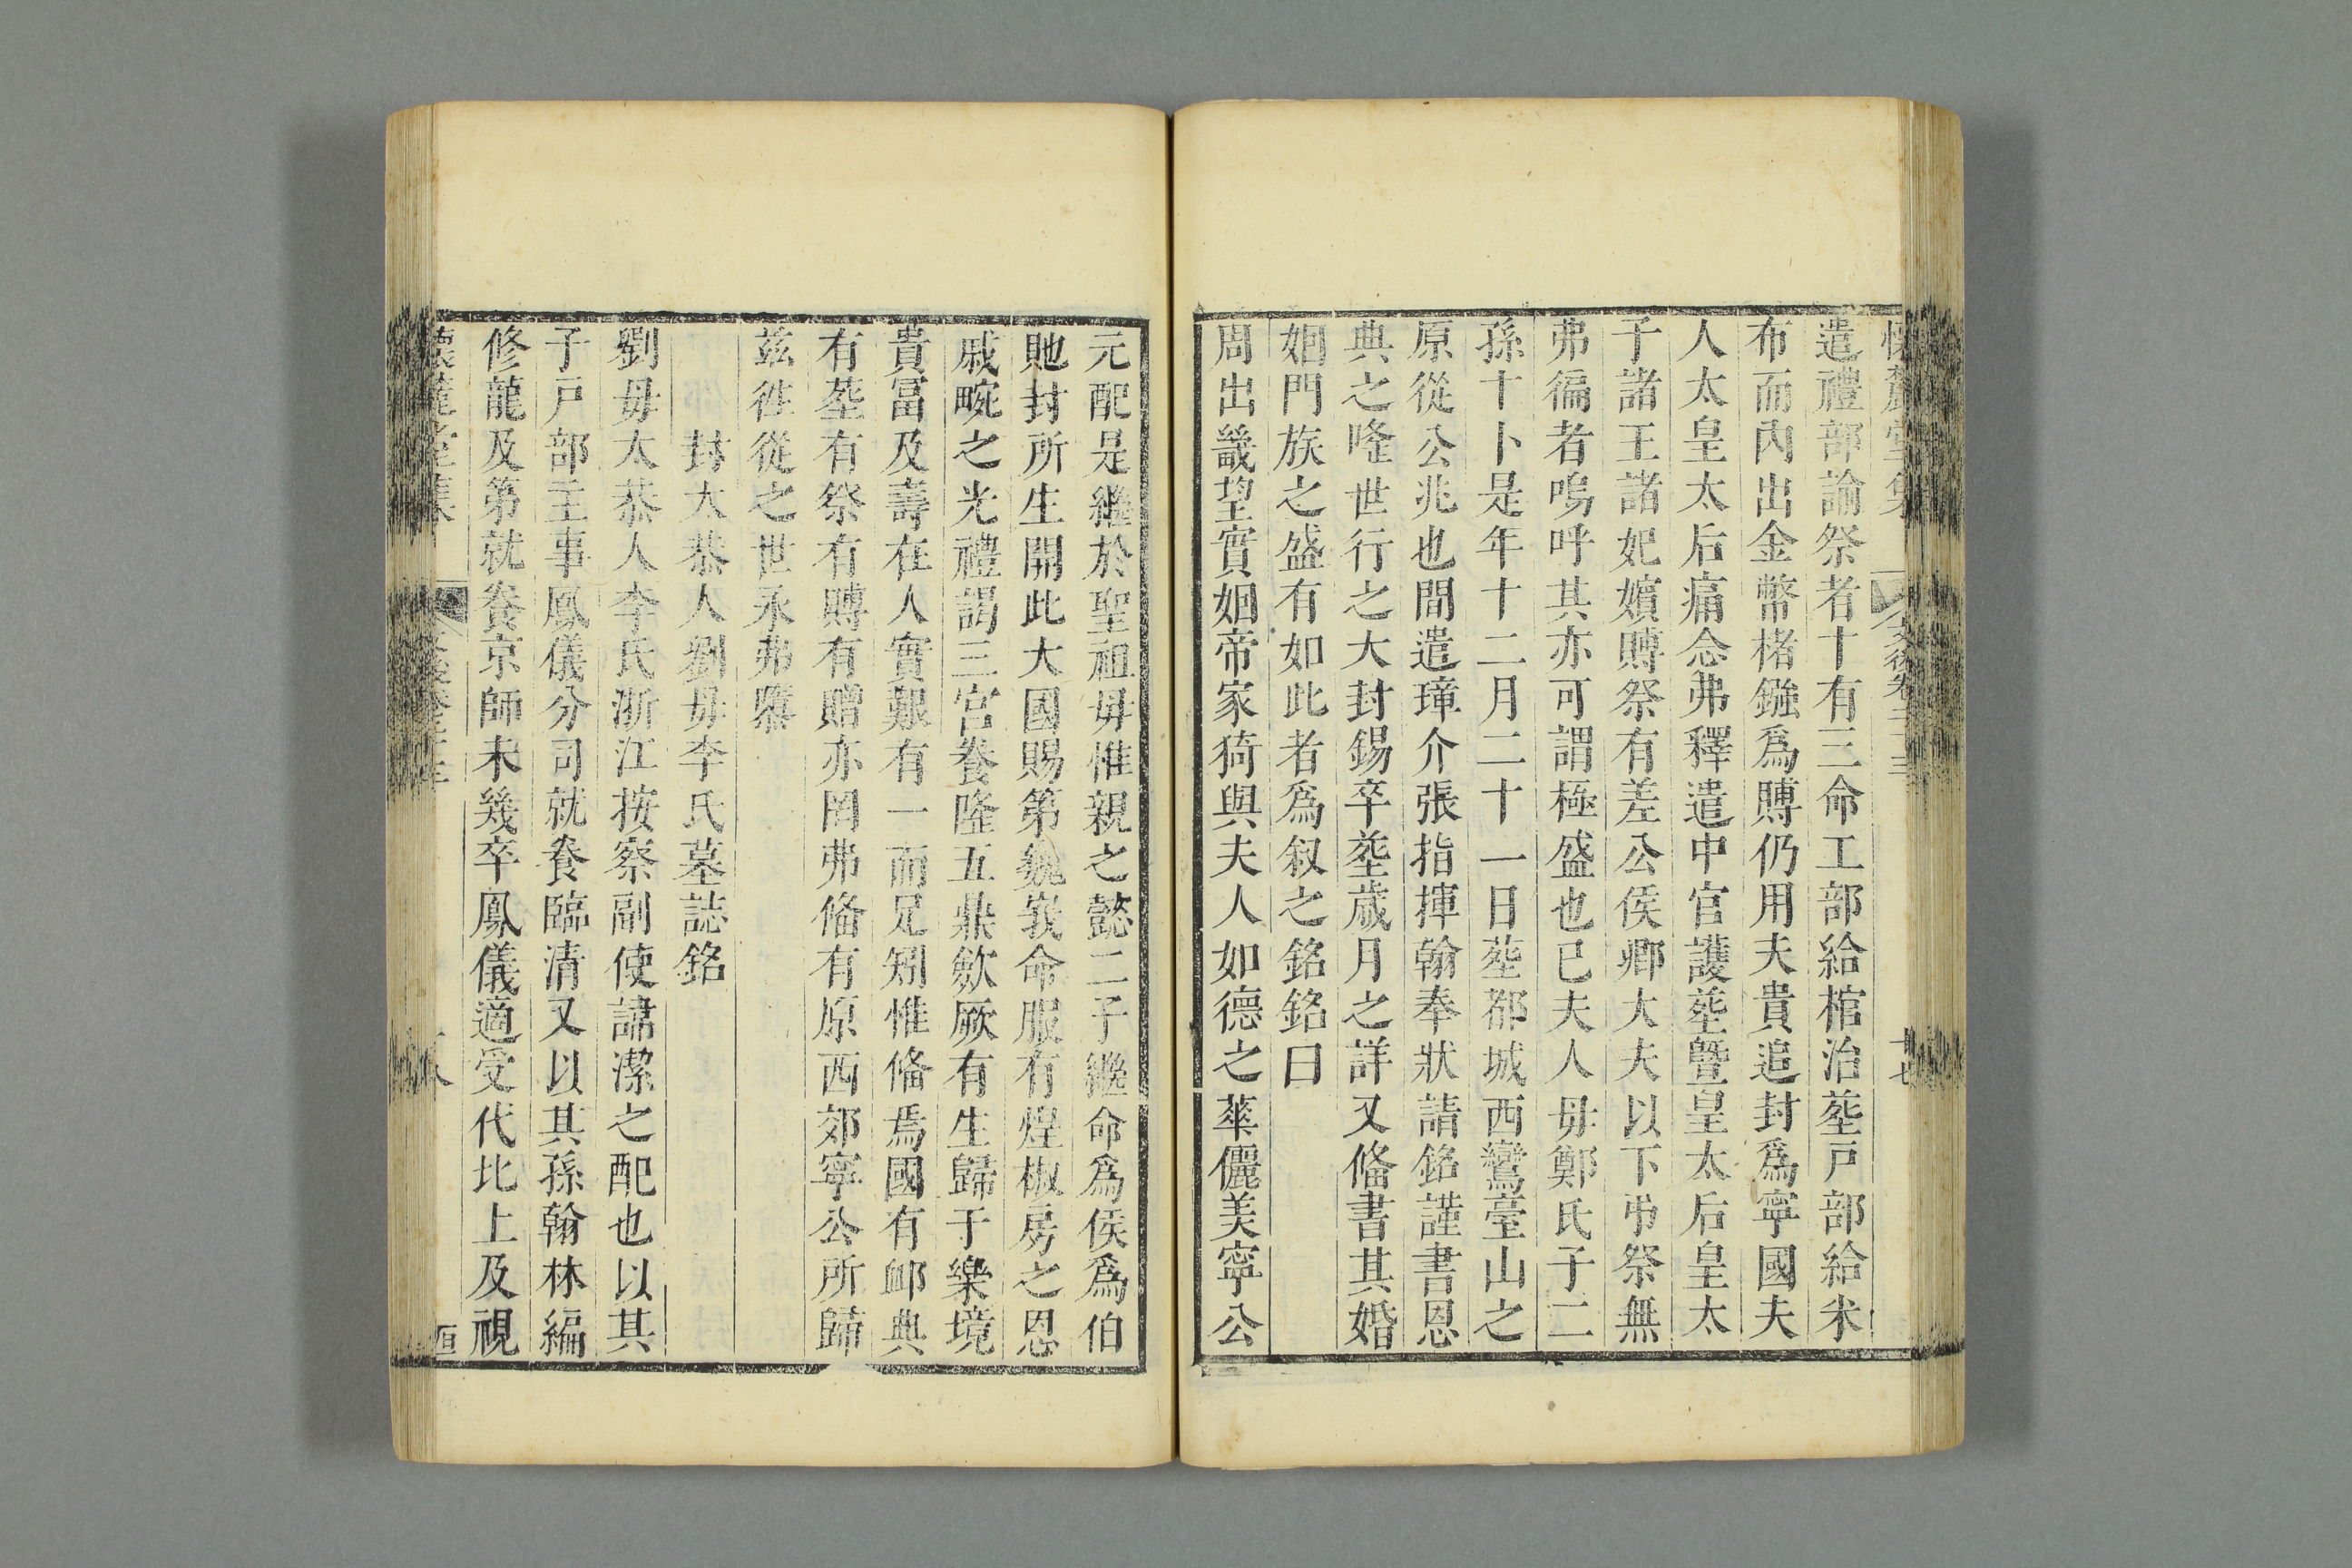 懷麓堂集 文後卷二十三 十七
遣禮部諭祭者十有三命工部給棺治塟戸部給米
布而內出金幣楮鏹爲賻仍用夫貴追封爲寧國夫
人太皇太后痛念弗釋遣中官護塟曁皇太后皇太
子諸王諸妃嬪賻祭有差公侯卿大夫以下弔祭無
弗徧者嗚呼其亦可謂極盛也已夫人毋鄭氏子二
孫十卜是年十二月二十一日塟都城西鸞臺山之
原從公兆也間遣瑋介張指揮翰奉狀請銘謹書恩
典之隆世行之大封錫卒塟歲月之詳又俻書其婚
姻門族之盛有如此者爲叙之銘銘曰
周出畿望實姻帝家猗與夫人如德之華儷美寧公
元配是繼於聖祖毋惟親之懿二子繼命爲侯爲伯
貤封所生開此大國賜第巍峩命服有煌椒房之恩
戚畹之光禮謁三宮養隆五鼎歛厥有生歸于樂境
貴冨及壽在人實艱有一而足矧惟俻焉國有䘏典
有塟有祭有賻有贈亦罔弗俻有原西郊寧公所歸
兹徃從之世承弗隳
封太恭人劉毋李氏墓誌銘
劉毋太恭人李氏浙江按察副使諱潔之配也以其
子戸部主事鳳儀分司就養臨清又以其孫翰林編
修龍及第就養京師未幾卒鳳儀適受代北上及視
懷麓堂集 文後卷二十三 十八